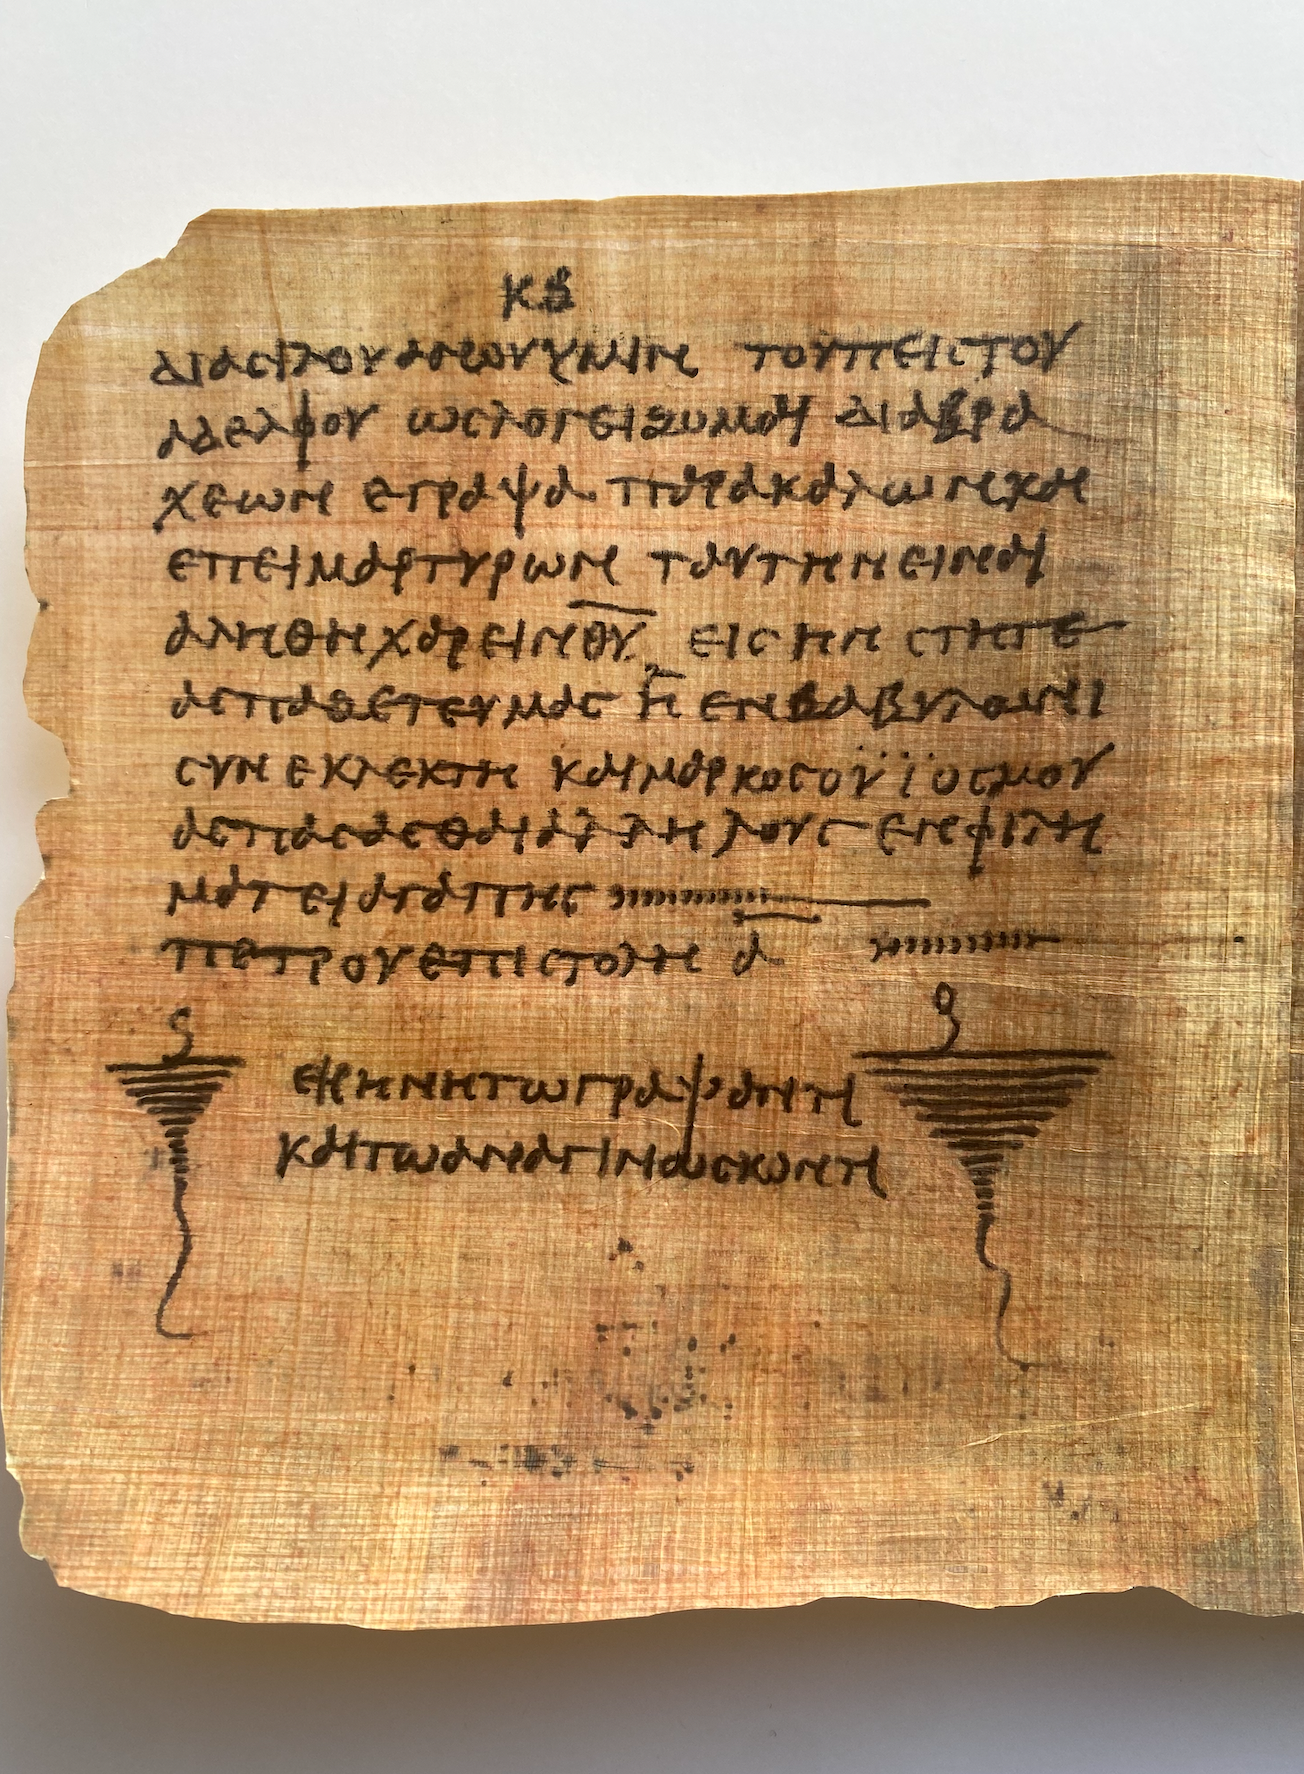 κβ
διασιλουανουυμιν τουπειστου
αδελφου ωςλογειζομαι διαβρα
χεων εγραψα παρακαλωνκαι
επειμαρτυρων ταυτηνειναι
αληθηχαρεινθ̅υ̅ εις ην στητε
ασπαζετευμας η ενβαβυλωνι
συν εκλεκτη καιμαρκοςοϋϊοςμου
ασπασασθαιαλληλους ενφιλη
ματειαγαπης
πετρουεπιστολη α̅
ειρηνητωγραψαντι
καιτωαναγινωσκοντι